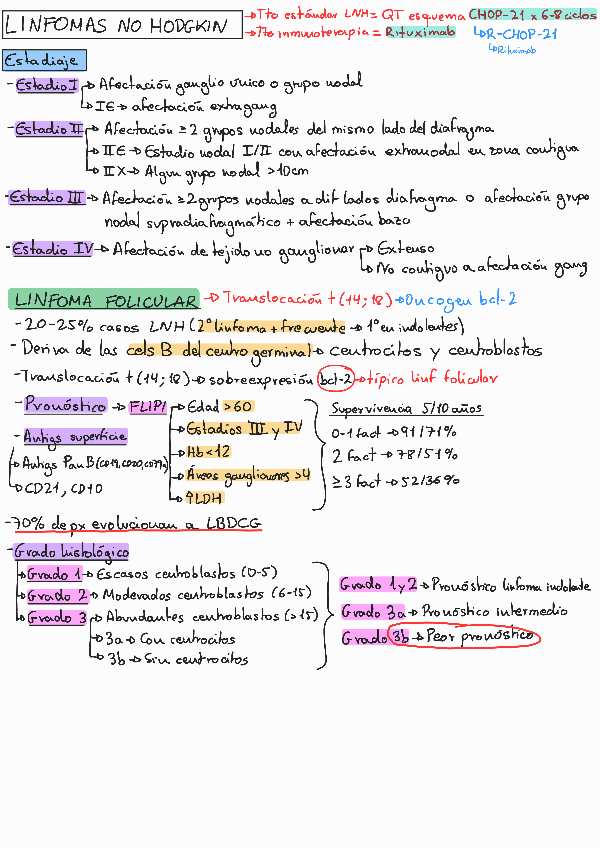 LINFOMAS NO HODGKIN → Tto estándar LNH = QT esquema CHOP-21 x 6-8 ciclos
→ Tto inmunoterapia = Rituximab ↳ R-CHOP-21
↳ Rituximab
Estadiaje
- Estadio I → Afectación ganglio único o grupo nodal
↳ IE → afectación extragang
- Estadio II → Afectación ≥ 2 grupos nodales del mismo lado del diafragma
→ IIE → Estadio nodal I/II con afectación extranodal en zona contigua
→ IIX → Algun grupo nodal > 10cm
- Estadio III → Afectación ≥ 2 grupos nodales a dif lados diafragma o afectación grupo
nodal supradiafragmático + afectación bazo
- Estadio IV → Afectación de tejido no ganglionar → Extenso
↳ No contiguo a afectación gang
LINFOMA FOLICULAR → Translocación t(14;18) → Oncogen bcl-2
- 20-25% casos LNH (2º linfoma + frecuente → 1º en indolentes)
- Deriva de las cels B del centro germinal → centrocitos y centroblastos
- Translocación t(14;18) → sobreexpresión bcl-2 → típico linf folicular
- Pronóstico → FLIPI → Edad > 60
→ Estadios III y IV
→ Hb < 12
→ Áreas ganglionares > 4
→ ↑LDH
Supervivencia 5/10 años
0-1 fact → 91/71%
2 fact → 78/51%
≥ 3 fact → 52/36%
- Antigs superficie
→ Antigs Pan B (CD19, CD20, CD79a)
→ CD21, CD10
- 70% de px evolucionan a LBDCG
- Grado histológico
→ Grado 1 → Escasos centroblastos (0-5)
→ Grado 2 → Moderados centroblastos (6-15)
→ Grado 3 → Abundantes centroblastos (> 15)
→ 3a → Con centrocitos
→ 3b → Sin centrocitos
Grado 1 y 2 → Pronóstico linfoma indolente
Grado 3a → Pronóstico intermedio
Grado 3b → Peor pronóstico